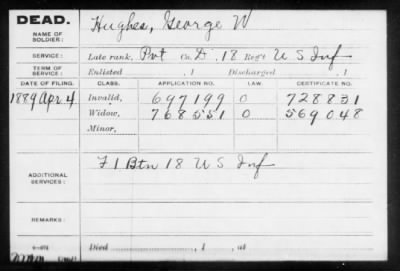 DEAD.
NAME OF SOLDIER:
Hughes, George W
SERVICE:
Late rank, Pvt Co. D, 18 Reg't U S Inf
TERM OF SERVICE:
Enlisted , 1 Discharged , 1
DATE OF FILING. CLASS. APPLICATION NO. LAW. CERTIFICATE NO.
1889 Apr 4 Invalid, 697199 O 728831
Widow, 768551 O 569048
Minor,
ADDITIONAL SERVICES:
F 1 Btn 18 U S Inf
REMARKS:
Died , 1 , at